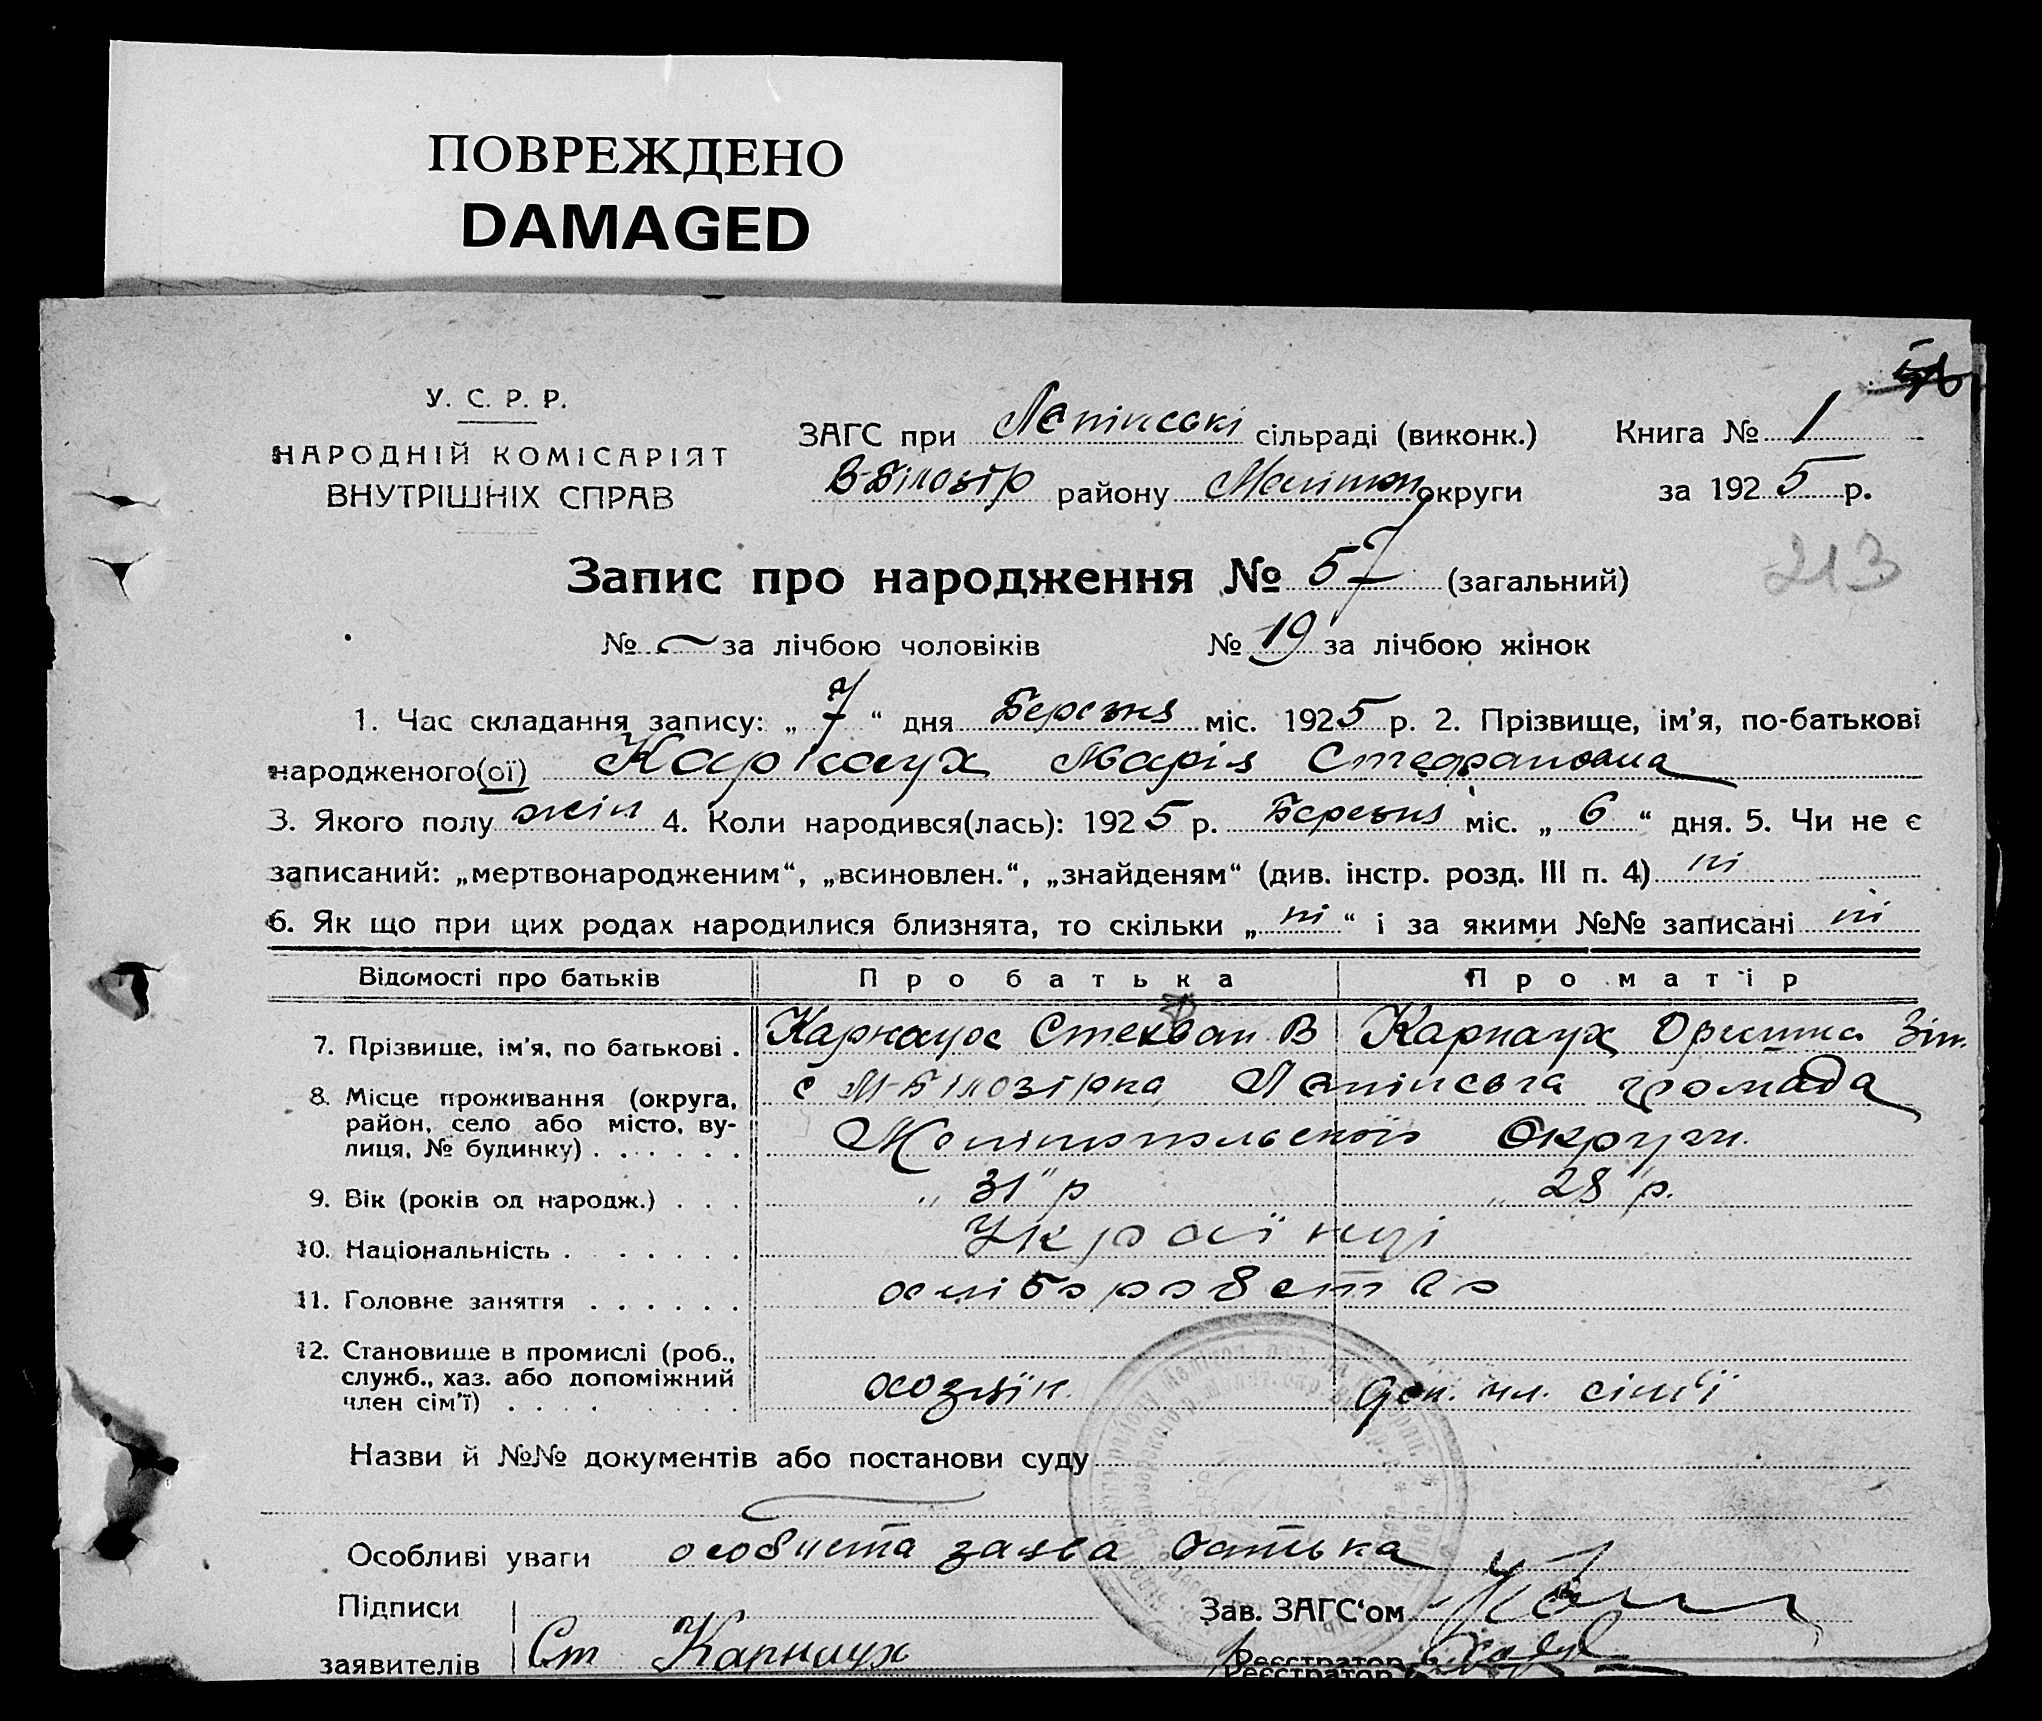 ПОВРЕЖДЕНО
DAMAGED
У. С. Р. Р.
НАРОДНІЙ КОМІСАРІЯТ
ВНУТРІШНІХ СПРАВ
ЗАГС при Лепінські сільраді (виконк.) Книга № 1
В-Білозір району Мелітоп округи за 1925 р.
213
Запис про народження № 57 (загальний)
№ за лічбою чоловіків № 19 за лічбою жінок
1. Час складання запису: „ 7 “ дня Березня міс. 1925 р. 2. Прізвище, ім'я, по-батькові
народженого(ої) Карнаух Марія Стефановна
3. Якого полу жін 4. Коли народився(лась): 1925 р. Березня міс. „ 6 “ дня. 5. Чи не є
записаний: „мертвонародженим“, „всиновлен.“, „знайденям“ (див. інстр. розд. III п. 4) ні
6. Як що при цих родах народилися близнята, то скільки „ ні “ і за якими №№ записані ні
Відомості про батьків Про батька Про матір
7. Прізвище, ім'я, по батькові . Карнаух Стефан В Карнаух Оришка Зін.
8. Місце проживання (округа, район, село або місто, вулиця, № будинку) . . . . . . с М-Білозірка, Лепінська громада
Мелітопольської Округи.
9. Вік (років од народж.) . . . „ 31 " р „ 28 " р.
10. Національність . . . . . . . Українці
11. Головне заняття . . . . . . хліборобство
12. Становище в промислі (роб., служб., хаз. або допоміжний член сім'ї) . . . . . . . . хозяїн. доп. чл. сім'ї
Назви й №№ документів або постанови суду
Особливі уваги особиста заява батька
Підписи Зав. ЗАГС'ом
заявителів Ст Карнаух Реєстратор
Реєстратор